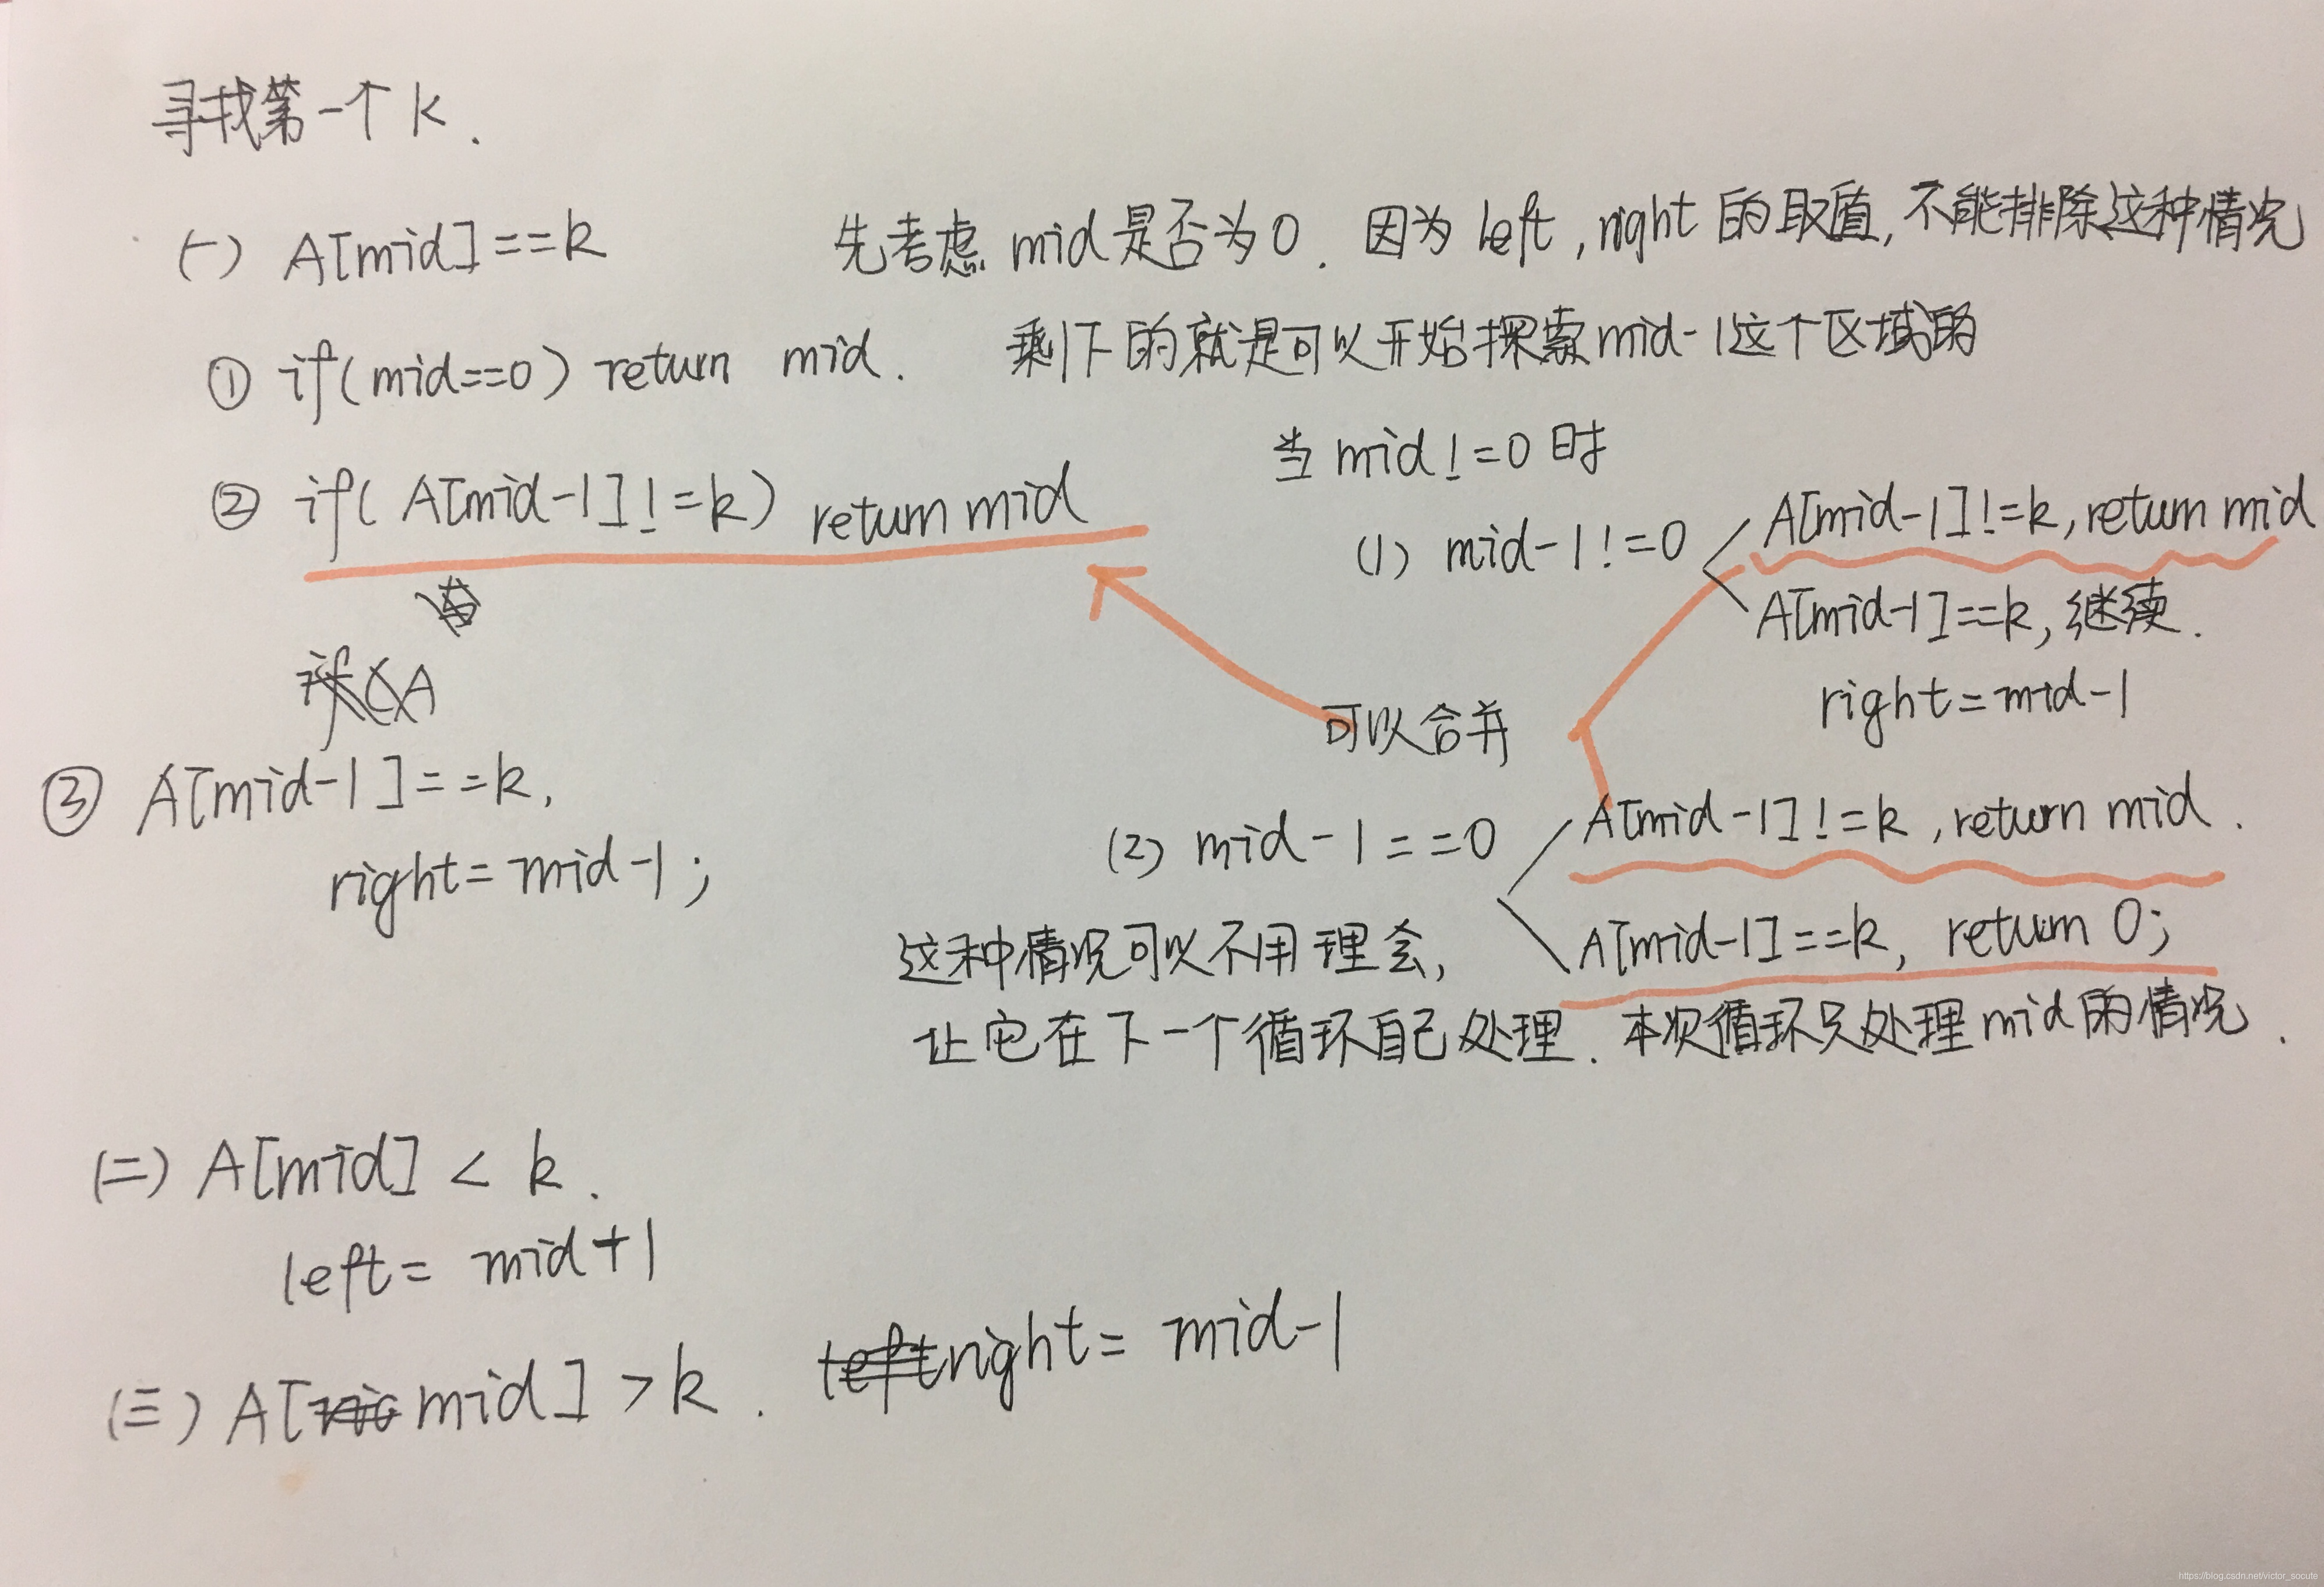 寻找第一个 k.
(一) A[mid]==k
先考虑 mid 是否为0. 因为 left, right 的取值, 不能排除这种情况
① if(mid==0) return mid.
剩下的就是可以开始探索mid-1这个区域的
当 mid!=0 时
② if( A[mid-1]!=k) return mid
(1) mid-1!=0
A[mid-1]!=k, return mid
A[mid-1]==k, 继续.
right=mid-1
可以合并
③ A[mid-1]==k,
right=mid-1;
(2) mid-1==0
A[mid-1]!=k, return mid.
A[mid-1]==k, return 0;
这种情况可以不用理会,
让它在下一个循环自己处理. 本次循环只处理mid的情况.
(二) A[mid] < k.
left= mid+1
(三) A[mid] > k. right= mid-1
https://blog.csdn.net/victor_socute